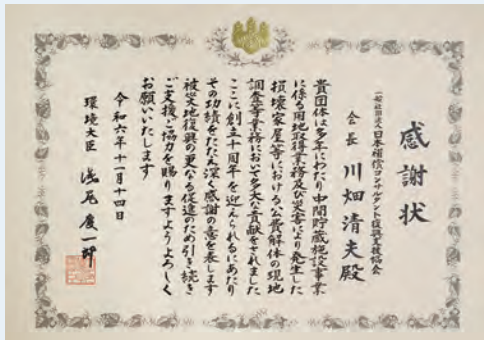 感謝状
一般社団法人日本補償コンサルタント復興支援協会
会長 川畑清夫殿
貴団体は多年にわたり中間貯蔵施設事業
に係る用地取得業務及び災害により発生した
損壊家屋等における公費解体の現地
調査等業務において多大な貢献をされました
ここに創立十周年を迎えられるにあたり
その功績をたたえ深く感謝の意を表します
被災地復興の更なる促進のため引き続き
ご支援ご協力を賜りますようよろしく
お願いいたします
令和六年十一月十四日
環境大臣 浅尾慶一郎